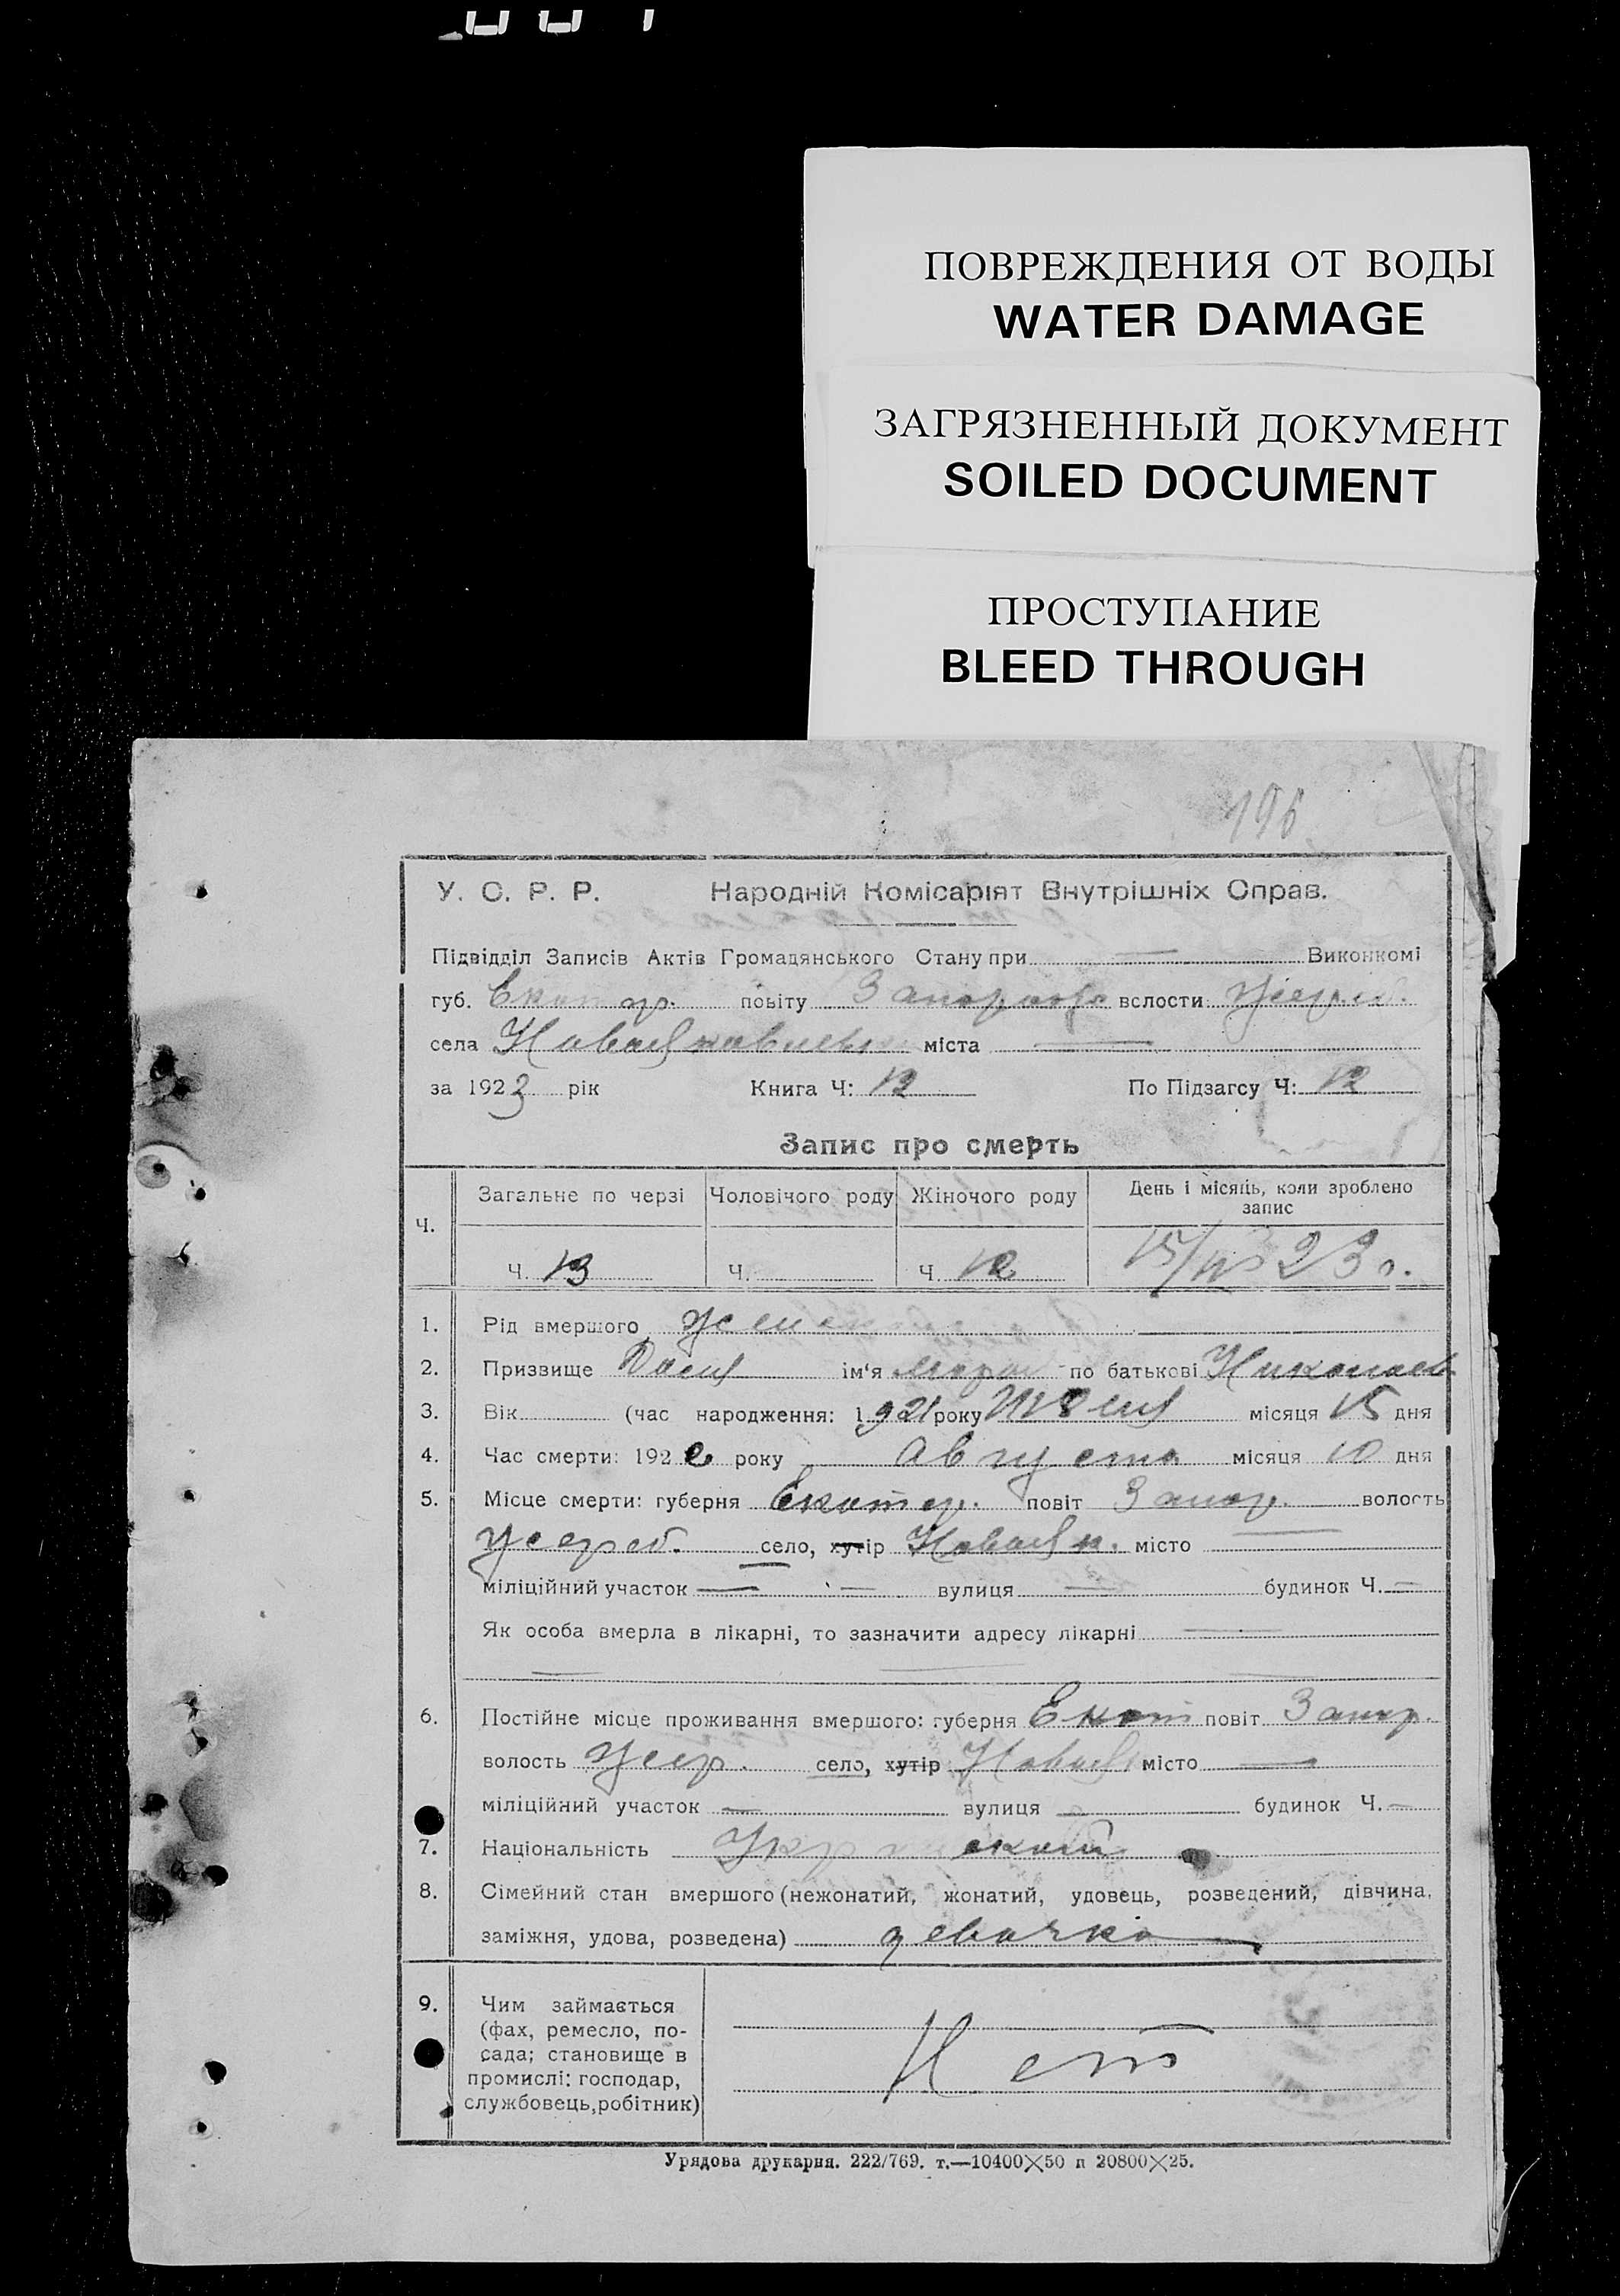 ПОВРЕЖДЕНИЯ ОТ ВОДЫ
WATER DAMAGE
ЗАГРЯЗНЕННЫЙ ДОКУМЕНТ
SOILED DOCUMENT
ПРОСТУПАНИЕ
BLEED THROUGH
196
У. С. Р. Р. Народній Комісаріят Внутрішніх Справ.
Підвідділ Записів Актів Громадянського Стану при Виконкомі
губ. Екатер. повіту вслости
села міста
за 1923 рік Книга Ч: 12 По Підзагсу Ч: 12
Запис про смерть
Ч. Загальне по черзі Чоловічого роду Жіночого роду День і місяць, коли зроблено
запис
Ч. 13 Ч. Ч. 12
1. Рід вмершого
2. Призвище ім'я по батькові Николаев
3. Вік (час народження: 1921 року місяця 15 дня
4. Час смерти: 1922 року Августа місяця 10 дня
5. Місце смерти: губерня Екатер. повіт Запор. волость
село, хутір місто
міліційний участок вулиця будинок Ч.
Як особа вмерла в лікарні, то зазначити адресу лікарні
6. Постійне місце проживання вмершого: губерня Екат повіт Запор.
волость село, хутір місто
міліційний участок вулиця будинок Ч.
7. Національність
8. Сімейний стан вмершого (нежонатий, жонатий, удовець, розведений, дівчина,
заміжня, удова, розведена) девочка
9. Чим займається
(фах, ремесло, по-
сада; становище в
промислі: господар,
службовець, робітник)
Нет
Урядова друкарня. 222/769. т.—10400×50 п 20800×25.